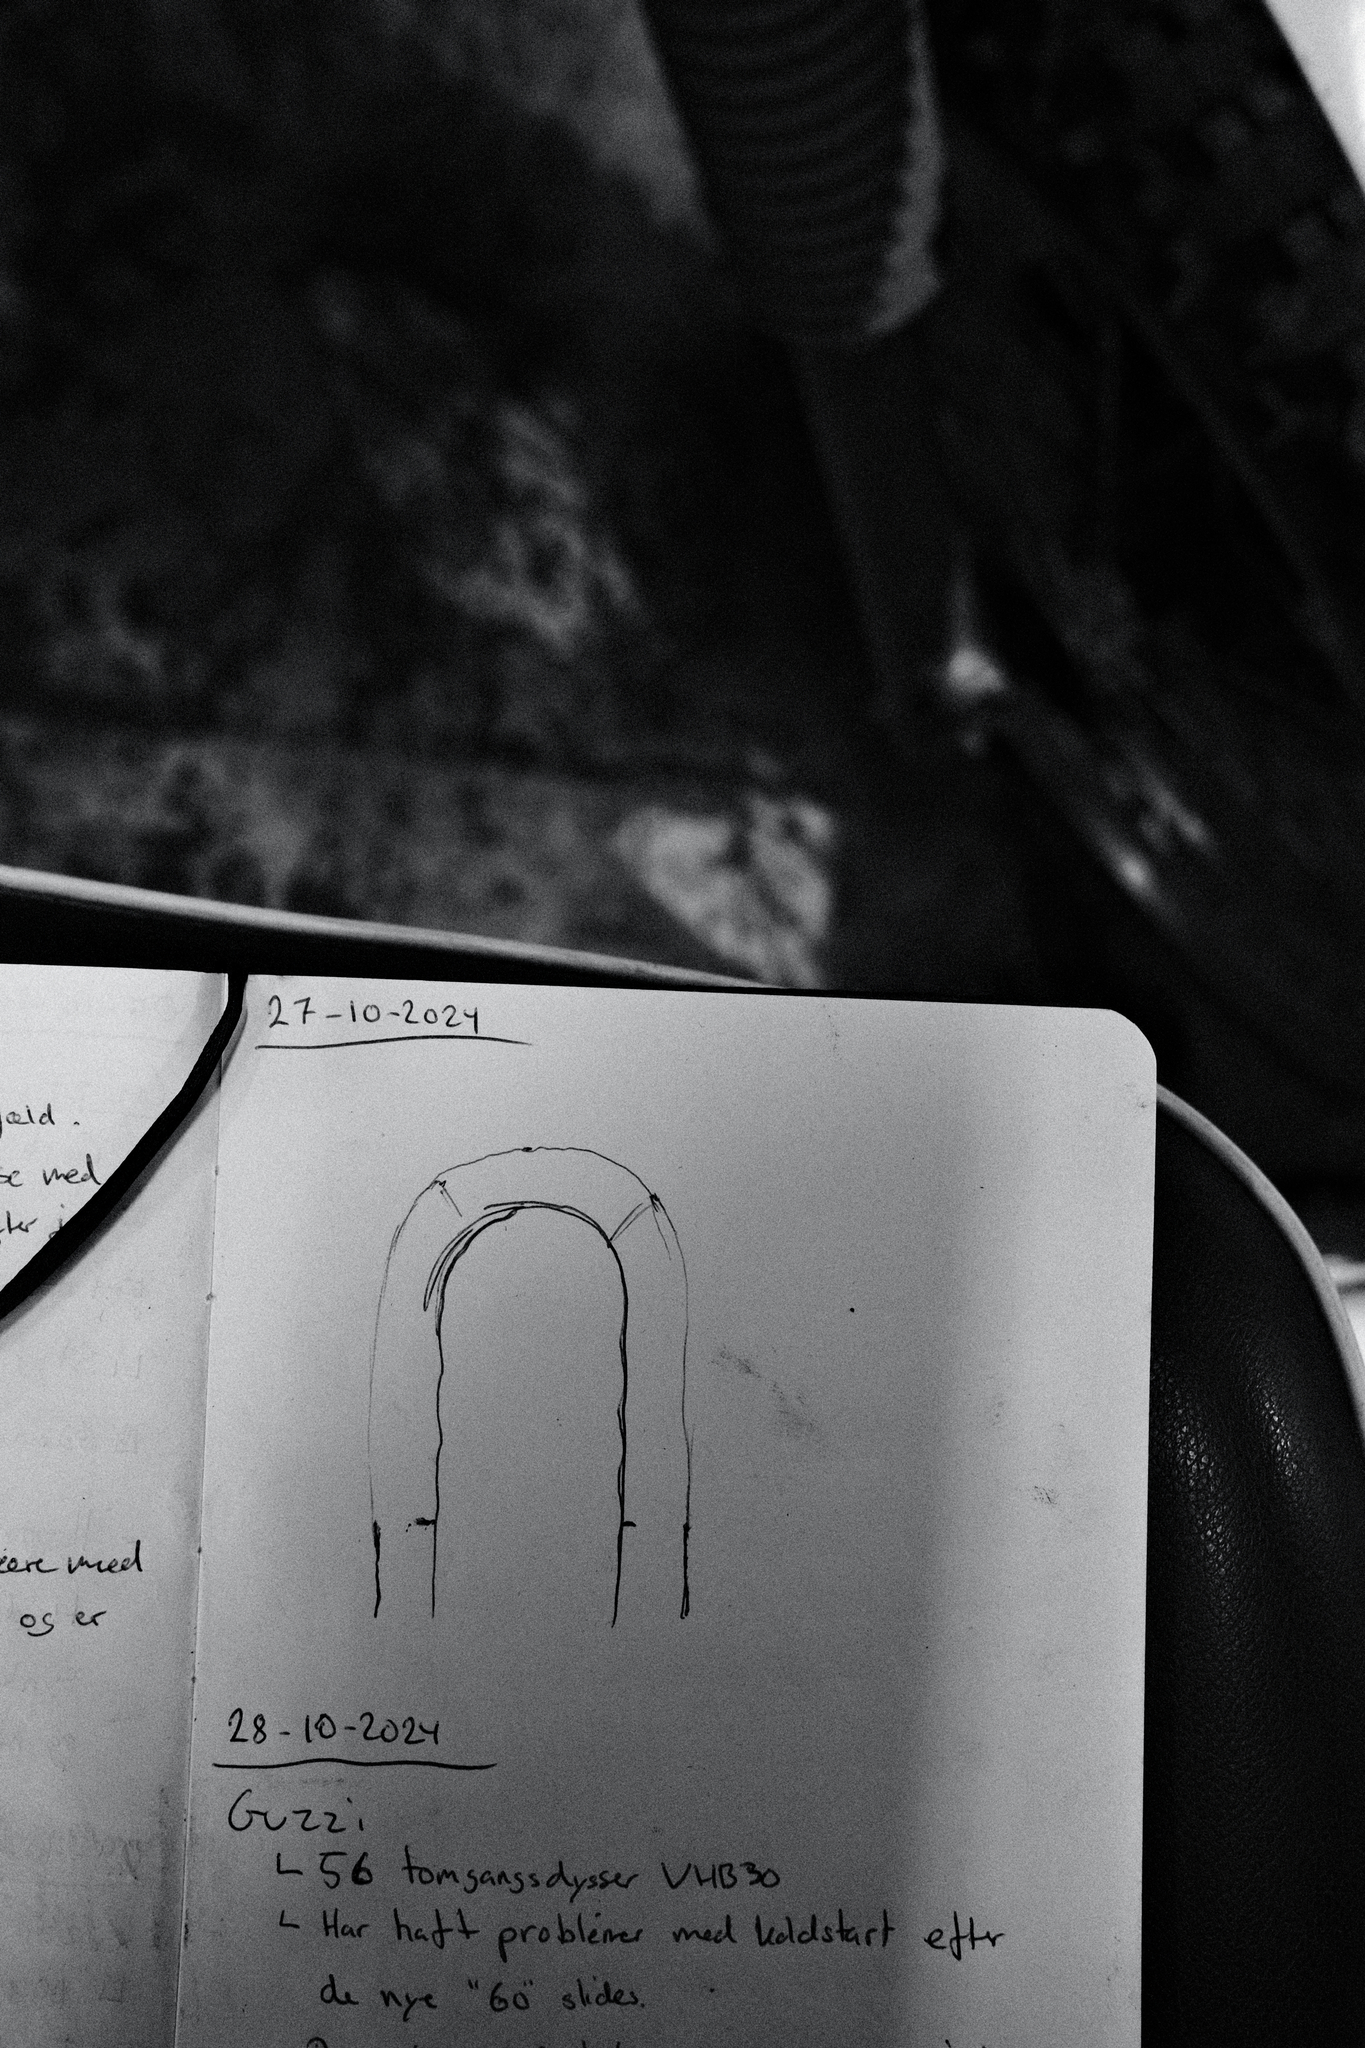 med
27-10-2024
med
og er
28-10-2024
Guzzi
56 tomgangsdysser VHB30
Har haft problemer med koldstart efter
de nye "60" slides.